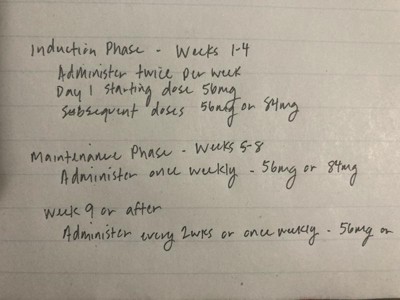 Induction Phase - Weeks 1-4
Administer twice per week
Day 1 starting dose 56mg
Subsequent doses 56mg or 84mg
Maintenance Phase - Weeks 5-8
Administer once weekly - 56mg or 84mg
Week 9 or after
Administer every 2wks or once weekly - 56mg or